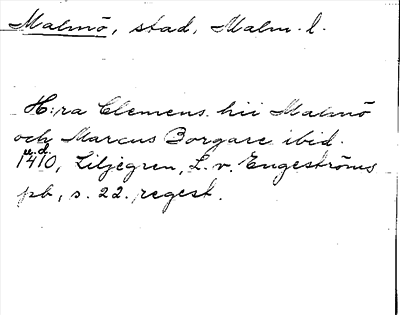 Malmö, stad, Malm. l.
H:ra Clemens hii Malmö
och Marcus Borgare ibid.
u.d.
1410, Liljegren, L. v. Engeströms
pb, s. 22. regest.